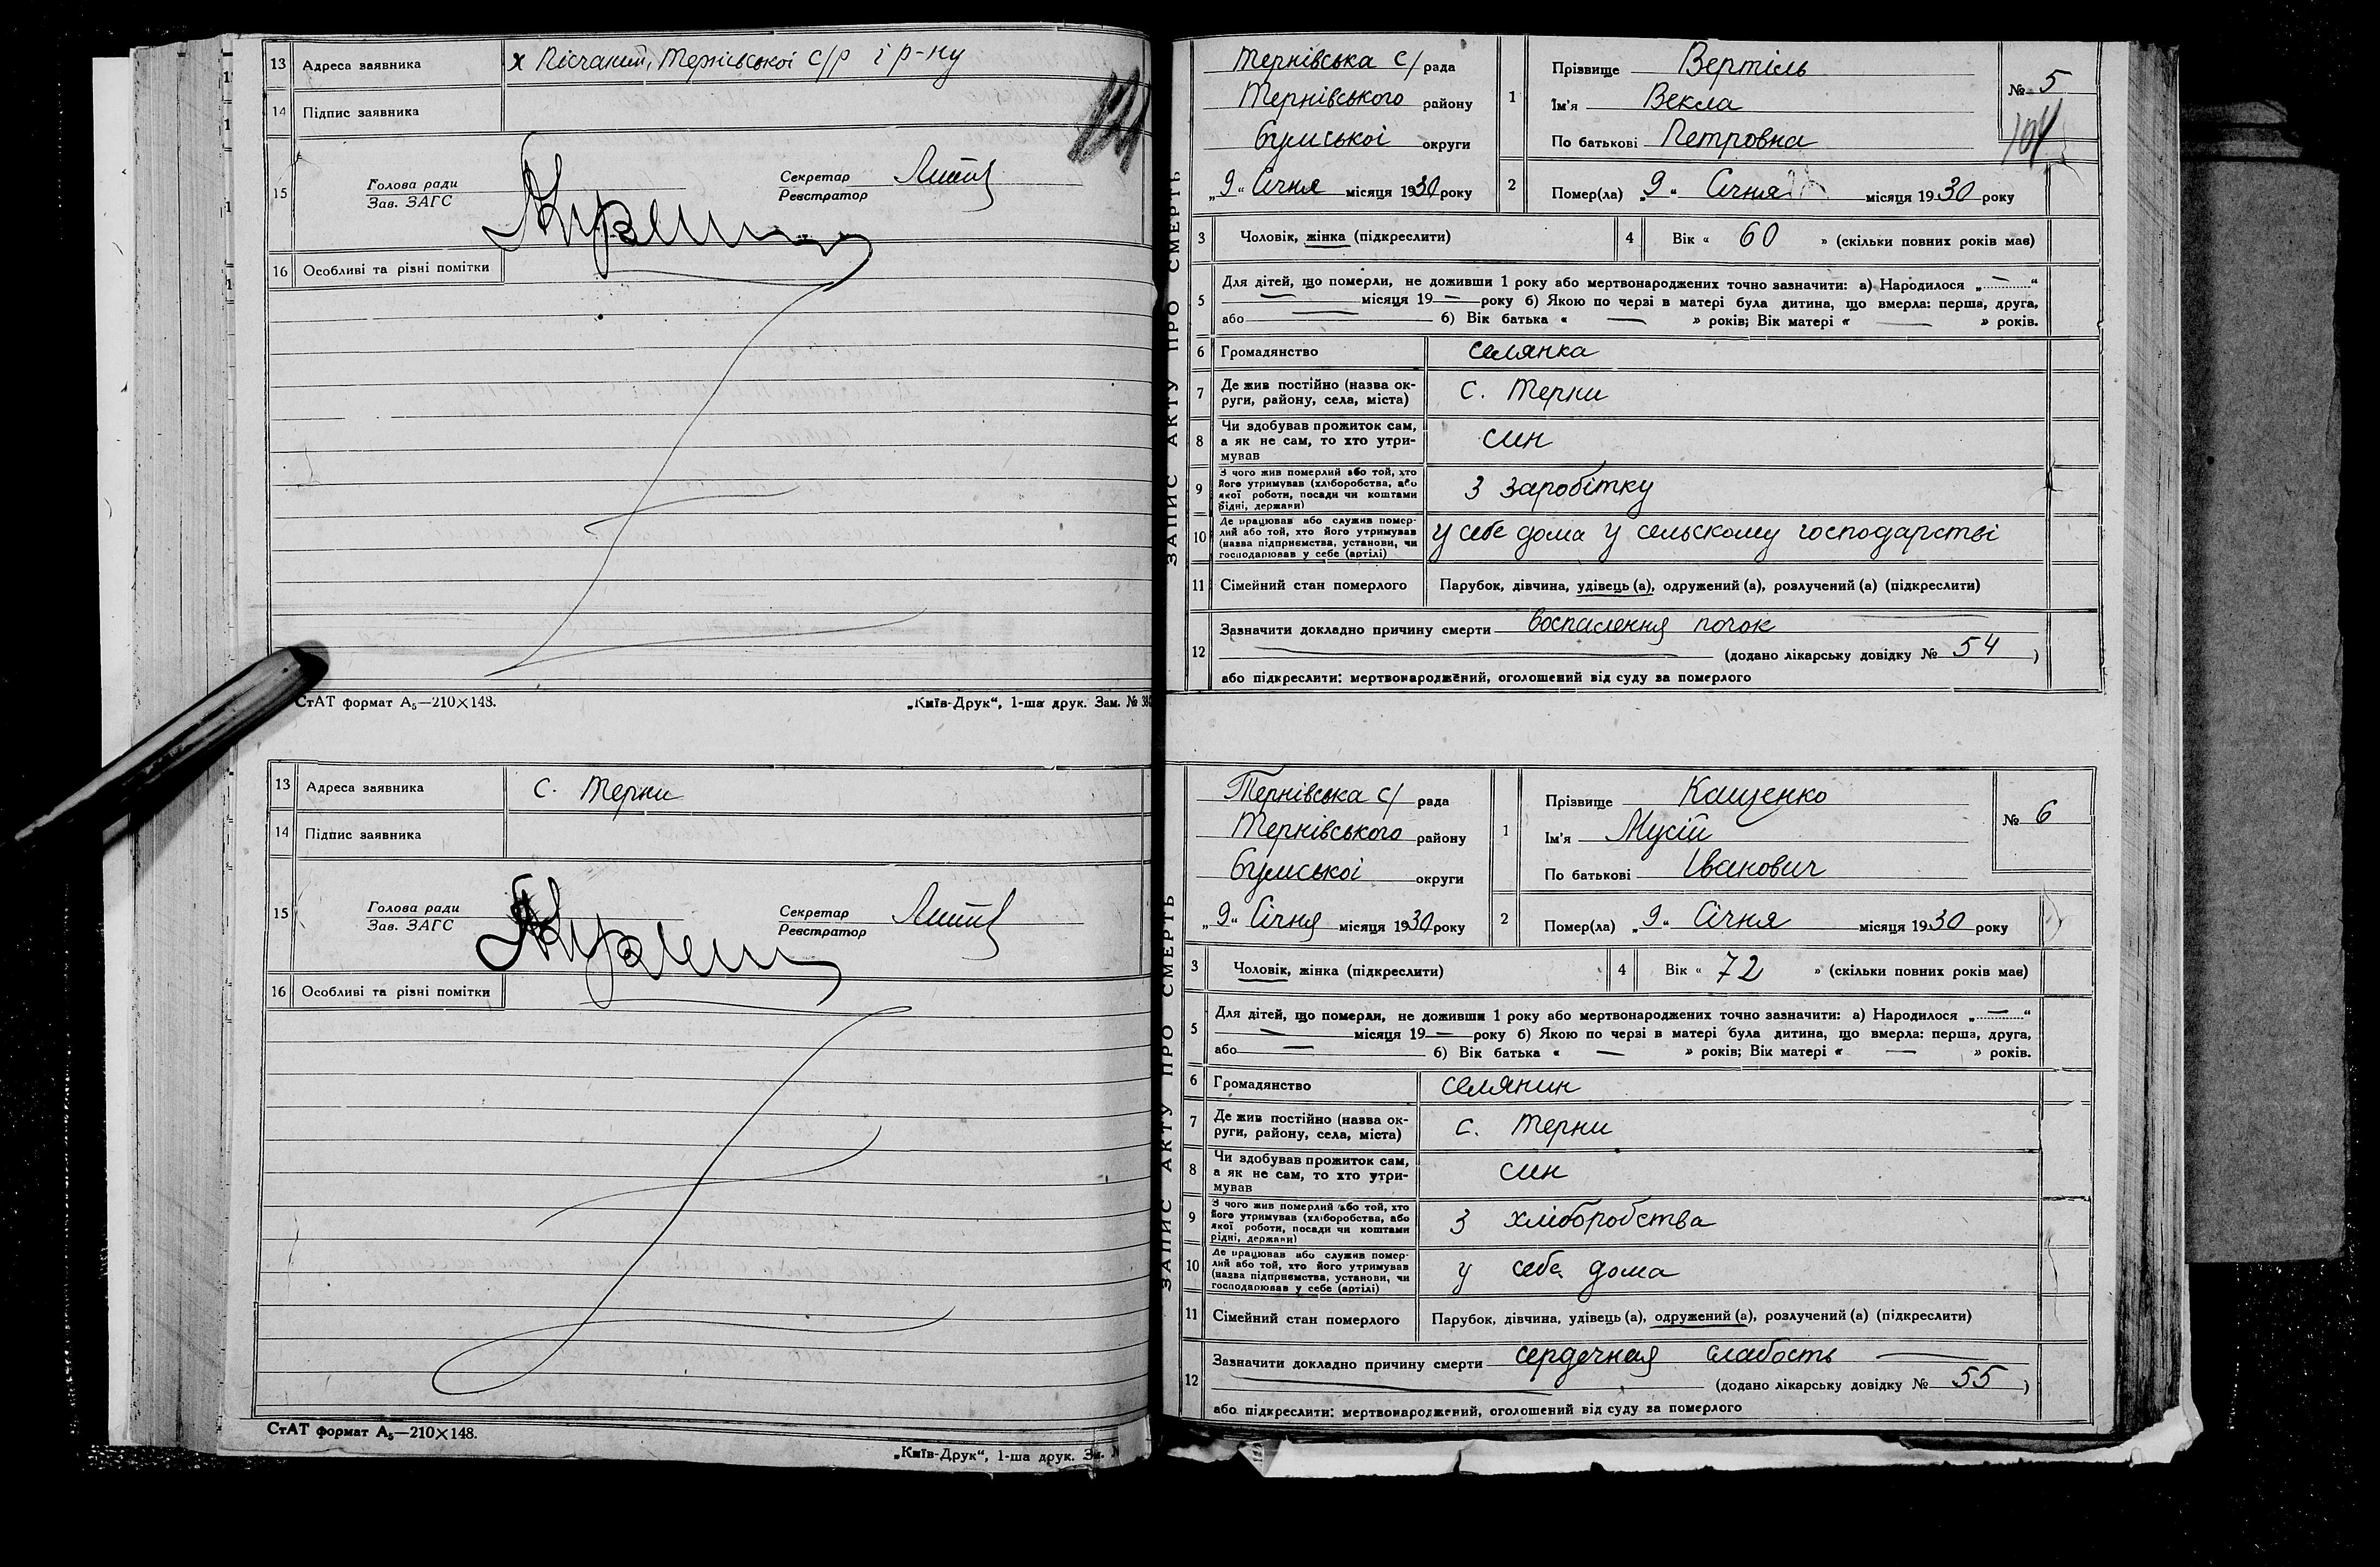 13 Адреса заявника х Пісчаний, Тернівської с/р і р-ну
14 Підпис заявника
15 Голова ради Секретар
Зав. ЗАГС Реєстратор
16 Особливі та різні помітки
СтАТ формат А₅—210×148.
„Київ-Друк“, 1-ша друк. Зам. №
13 Адреса заявника с. Терни
14 Підпис заявника
15 Голова ради Секретар
Зав. ЗАГС Реєстратор
16 Особливі та різні помітки
СтАТ формат А₅—210×148.
„Київ-Друк“, 1-ша друк.
ЗАПИС АКТУ ПРО СМЕРТЬ
Тернівська с/ рада
Тернівського району
Сумської округи
„9“ Січня місяця 1930 року
1 Прізвище Вертіль
Ім'я Векла
По батькові Петровна
№ 5
101
2 Помер(ла) „9“ Січня місяця 1930 року
3 Чоловік, жінка (підкреслити) 4 Вік « 60 » (скільки повних років мав)
5 Для дітей, що померли, не доживши 1 року або мертвонароджених точно зазначити: а) Народилося „—“
— місяця 19 — року б) Якою по черзі в матері була дитина, що вмерла: перша, друга,
або — б) Вік батька « — » років; Вік матері « — » років.
6 Громадянство селянка
7 Де жив постійно (назва ок-
руги, району, села, міста) с. Терни
8 Чи здобував прожиток сам,
а як не сам, то хто утри-
мував син
9 З чого жив померлий або той, хто
його утримував (хліборобства, або
якої роботи, посади чи коштами
рідні, держави) З заробітку
10 Де працював або служив помер-
лий або той, хто його утримував
(назва підприємства, установи, чи
господарював у себе (артілі) у себе дома у сельскому господарстві
11 Сімейний стан померлого Парубок, дівчина, удівець (а), одружений (а), розлучений (а) (підкреслити)
12 Зазначити докладно причину смерти воспалення почок
(додано лікарську довідку № 54 )
або підкреслити: мертвонароджений, оголошений від суду за померлого
ЗАПИС АКТУ ПРО СМЕРТЬ
Тернівська с/ рада
Тернівського району
Сумської округи
„9“ Січня місяця 1930 року
1 Прізвище Кащенко
Ім'я Мусій
По батькові Іванович
№ 6
2 Помер(ла) „9“ Січня місяця 1930 року
3 Чоловік, жінка (підкреслити) 4 Вік « 72 » (скільки повних років мав)
5 Для дітей, що померли, не доживши 1 року або мертвонароджених точно зазначити: а) Народилося „—“
— місяця 19 — року б) Якою по черзі в матері була дитина, що вмерла: перша, друга,
або — б) Вік батька « — » років; Вік матері « — » років.
6 Громадянство селянин
7 Де жив постійно (назва ок-
руги, району, села, міста) с. Терни
8 Чи здобував прожиток сам,
а як не сам, то хто утри-
мував син
9 З чого жив померлий або той, хто
його утримував (хліборобства, або
якої роботи, посади чи коштами
рідні, держави) З хліборобства
10 Де працював або служив помер-
лий або той, хто його утримував
(назва підприємства, установи, чи
господарював у себе (артілі) у себе дома
11 Сімейний стан померлого Парубок, дівчина, удівець (а), одружений (а), розлучений (а) (підкреслити)
12 Зазначити докладно причину смерти сердечная слабость
(додано лікарську довідку № 55 )
або підкреслити: мертвонароджений, оголошений від суду за померлого